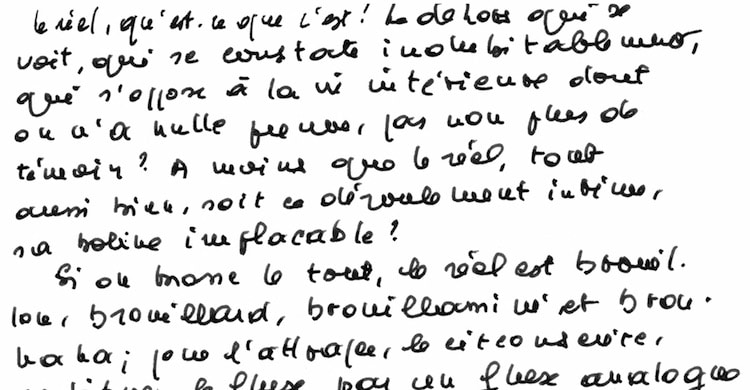 le réel, qu'est-ce que c'est? Le dehors qui se
voit, qui se constate indubitablement,
qui s'oppose à la vie intérieure dont
on n'a nulle preuve, pas non plus de
témoin? A moins que le réel, tout
aussi bien, soit ce déroulement intime,
sa bobine implacable?
Si on brasse le tout, le réel est brouil-
lon, brouillard, brouillamini et brou-
haha; pour l'attraper, le circonscrire,
le fluxe par un fluxe analogue